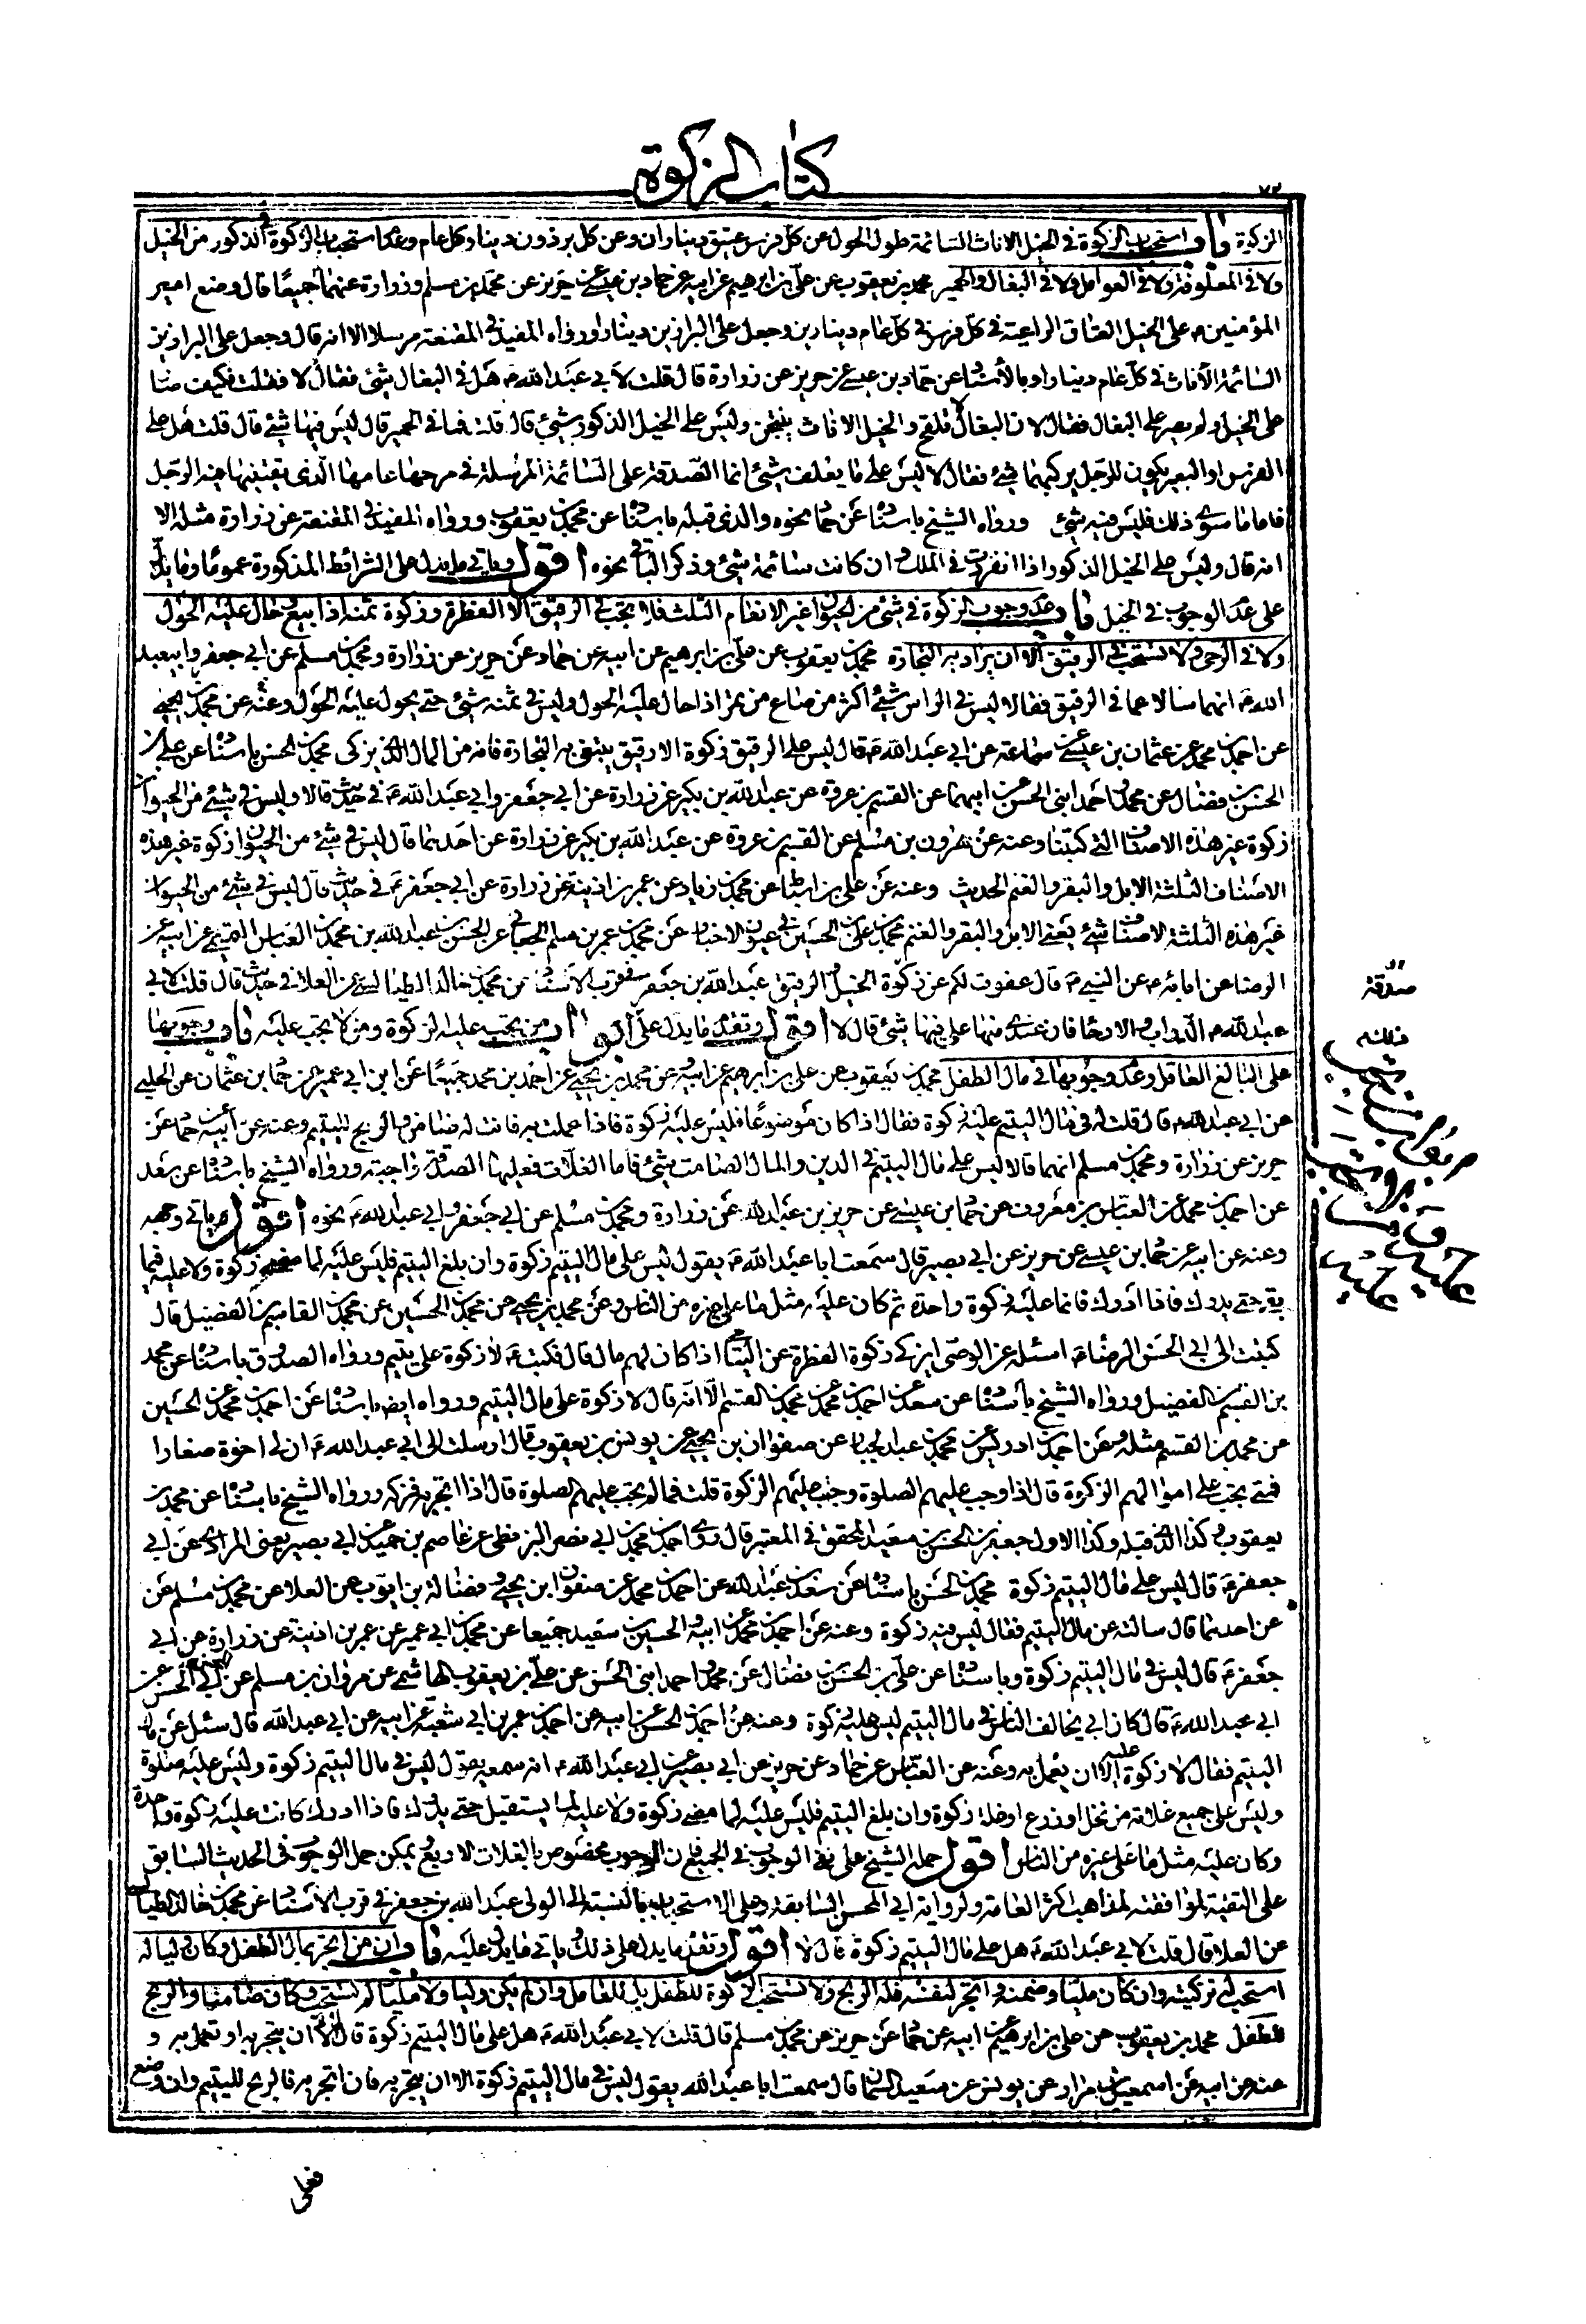 كتاب الزكوة
٧٢
الزكوة باب استحباب الزكوة في الخيل الاناث السائمة طول الحول عن كل فرس عتيق ديناران وعن كل برذون دينار كل عام وعدم استحباب الزكوة في الذكور من الخيل
ولا في المعلوفة ولا في العوامل ولا في البغال والحمير محمد بن يعقوب عن علي بن ابرهيم عن ابيه عن حماد بن عيسى عن حريز عن محمد بن مسلم وزرارة عنهما جميعا قال وضع امير
المؤمنين ع على الخيل العتاق الراعية في كل فرس في كل عام دينارين وجعل على البراذين دينارا ورواه المفيد في المقنعة مرسلا الا انه قال وجعل على البراذين
السائمة الاناث في كل عام دينارا وبالأسناد عن حماد بن عيسى عن حريز عن زرارة قال قلت لابي عبد الله ع هل في البغال شيء فقال لا فقلت فكيف صار
على الخيل ولم يصر على البغال فقال لان البغال لا تلقح والخيل الاناث ينتجن وليس على الخيل الذكور شيء قال قلت فما في الحمير قال ليس فيها شيء قال قلت هل على
الفرس او البعير يكون للرجل يركبهما شيء فقال لا ليس على ما يعلف شيء انما الصدقة على السائمة المرسلة في مرجها عامها الذي يقتنيها فيه الرجل
فاما ما سوى ذلك فليس فيه شيء ورواه الشيخ باسناده عن حماد نحوه والذي قبله باسناده عن محمد بن يعقوب ورواه المفيد في المقنعة عن زرارة مثله الا
انه قال وليس على الخيل الذكور اذا انفردت في الملك وان كانت سائمة شيء وذكر الباقي نحوه اقول وياتي ما يدل على الشرائط المذكورة عموما وما يدل
على عدم الوجوب في الخيل باب عدم وجوب الزكوة في شيء من الحيوان غير الانعام الثلث فلا تجب في الرقيق الا الفطرة وزكوة ثمنه اذا بيع وحال عليه الحول
ولا في الرحى ولا تستحب في الرقيق الا ان يراد به التجارة محمد بن يعقوب عن علي بن ابرهيم عن ابيه عن حماد عن حريز عن زرارة ومحمد بن مسلم عن ابي جعفر وابي عبد
الله ع انهما سئلا عما في الرقيق فقالا ليس في الراس شيء اكثر من صاع من تمر اذا حال عليه الحول وليس في ثمنه شيء حتى يحول عليه الحول وعنه عن محمد بن يحيى
عن احمد بن محمد عن عثمان بن عيسى عن سماعة عن ابي عبد الله ع قال ليس على الرقيق زكوة الا رقيق يبتغى به التجارة فانه من المال الذي يزكى محمد بن الحسن باسناده عن علي بن
الحسن بن فضال عن محمد واحمد ابنى الحسن عن ابيهما عن القسم بن عروة عن عبد الله بن بكير عن زرارة عن ابي جعفر وابي عبد الله ع في حديث قالا وليس في شيء من الحيوان
زكوة غير هذه الاصناف التي كتبنا وعنه عن هرون بن مسلم عن القسم بن عروة عن عبد الله بن بكير عن زرارة عن احدهما قال ليس في شيء من الحيوان زكوة غير هذه
الاصناف الثلثة الابل والبقر والغنم الحديث وعنه عن علي بن اسباط عن محمد بن زياد عن عمر بن اذينة عن زرارة عن ابي جعفر ع في حديث قال ليس في شيء من الحيوان
غير هذه الثلثة الاصناف شيء يعنى الابل والبقر والغنم محمد بن علي بن الحسين في عيون الاخبار عن محمد بن عمر بن مسلم الجعابي عن الحسن بن عبد الله بن محمد بن العباس التميمي عن ابيه عن
الرضا عن ابائه ع عن النبي ص قال عفوت لكم عن زكوة الخيل والرقيق عبد الله بن جعفر في قرب الاسناد عن محمد بن خالد الطيالسي عن العلا في حديث قال قلت لابي
عبد الله ع الدواب والارحا فان عندى منها على فيها شيء قال لا اقول وتقدم ما يدل على ابواب من تجب عليه الزكوة ومن لا تجب عليه باب وجوبها
على البالغ العاقل وعدم وجوبها في مال الطفل محمد بن يعقوب عن علي بن ابرهيم عن ابيه وعن محمد بن يحيى عن احمد بن محمد جميعا عن ابن ابي عمير عن حماد بن عثمان عن الحلبي
عن ابي عبد الله ع قال قلت له في مال اليتيم عليه زكوة فقال اذا كان موضوعا فليس عليه زكوة فاذا عملت به فانت له ضامن والربح لليتيم وعنه عن ابيه عن حماد عن
حريز عن زرارة ومحمد بن مسلم انهما قالا ليس على مال اليتيم في الدين والمال الصامت شيء فاما الغلات فعليها الصدقة واجبة ورواه الشيخ باسناده عن سعد
عن احمد بن محمد عن العباس بن معروف عن حماد بن عيسى عن حريز بن عبد الله عن زرارة ومحمد بن مسلم عن ابي جعفر وابي عبد الله ع نحوه اقول ياتي وجهه
وعنه عن ابيه عن حماد بن عيسى عن حريز عن ابي بصير قال سمعت ابا عبد الله ع يقول ليس على مال اليتيم زكوة وان بلغ اليتيم فليس عليه لما مضى زكوة ولا عليه فيما
بقى حتى يدرك فاذا ادرك فانما عليه زكوة واحدة ثم كان عليه مثل ما على غيره من الناس وعن محمد بن يحيى عن محمد بن الحسين عن محمد بن القاسم بن الفضيل قال
كتبت الى ابي الحسن الرضا ع اسئله عن الوصي ايزكى زكوة الفطرة عن اليتامى اذا كان لهم مال قال فكتب ع لا زكوة على يتيم ورواه الصدوق باسناده عن محمد
بن القسم بن الفضيل ورواه الشيخ باسناده عن سعد عن احمد بن محمد عن محمد بن القسم الا انه قال لا زكوة على مال اليتيم ورواه ايض باسناده عن احمد بن محمد عن الحسين
عن محمد بن القسم مثله وعن احمد بن ادريس عن محمد بن عبد الجبار عن صفوان بن يحيى عن يونس بن يعقوب قال ارسلت الى ابي عبد الله ع ان لى اخوة صغارا
فمتى تجب على اموالهم الزكوة قال اذا وجب عليهم الصلوة وجب عليهم الزكوة قلت فما لم تجب عليهم الصلوة قال اذا اتجر به فزكه ورواه الشيخ باسناده عن محمد بن
يعقوب وكذا الذي قبله وكذا الاول جعفر بن الحسن بن سعيد المحقق في المعتبر قال روى احمد بن محمد بن ابي نصر البزنطي عن عاصم بن حميد عن ابي بصير يعنى المرادى عن ابي
جعفر ع قال ليس على مال اليتيم زكوة محمد بن الحسن باسناده عن سعد بن عبد الله عن احمد بن محمد عن صفوان ابن يحيى وفضالة بن ايوب عن العلا عن محمد بن مسلم عن
عن احدهما قال سالته عن مال اليتيم فقال ليس فيه زكوة وعنه عن احمد بن محمد عن ابيه والحسين بن سعيد جميعا عن محمد بن ابي عمير عن عمر بن اذينة عن زرارة عن ابي
جعفر ع قال ليس في مال اليتيم زكوة وباسناده عن علي بن الحسن بن فضال عن محمد واحمد ابنى الحسن عن علي بن يعقوب الهاشمي عن مروان بن مسلم عن ابي الحسن عن
ابي عبد الله ع قال كان ابي يخالف الناس في مال اليتيم ليس عليه زكوة وعنه عن احمد بن الحسن عن ابيه عن احمد بن عمر بن ابي شعبة عن ابيه عن ابي عبد الله قال سئل عن مال
اليتيم فقال لا زكوة عليه الا ان يعمل به وعنه عن العباس عن حماد عن حريز عن ابي بصير عن ابي عبد الله ع انه سمعه يقول ليس في مال اليتيم زكوة وليس عليه صلوة
وليس على جميع غلاته من نخل او زرع او غلة زكوة وان بلغ اليتيم فليس عليه لما مضى زكوة ولا عليه لما يستقبل حتى يدرك فاذا ادرك كانت عليه زكوة واحدة
وكان عليه مثل ما على غيره من الناس اقول حمله الشيخ على نفي الوجوب في الجميع فان الوجوب مخصوص بالغلات الاربع ويمكن حمل الوجوب في الحديث السابق
على التقية لموافقته لمذاهب اكثر العامة ولرواية ابي الحسن السابقة وعلى الاستحباب بالنسبة الى الولى عبد الله بن جعفر في قرب الاسناد عن محمد بن خالد الطيالسي
عن العلا قال قلت لابي عبد الله ع هل على مال اليتيم زكوة قال لا اقول وتقدم ما يدل على ذلك وياتي ما يدل عليه باب ان من اتجر بمال الطفل وكان وليا له
استحب له تزكيته وان كان مليا وضمنه واتجر لنفسه فله الربح ولا تستحب الزكوة للطفل بل للعامل وان لم يكن وليا ولا مليا لم تستحب وكان ضامنا والربح
للطفل محمد بن يعقوب عن علي بن ابرهيم عن ابيه عن حماد عن حريز عن محمد بن مسلم قال قلت لابي عبد الله ع هل على مال اليتيم زكوة قال لا الا ان يتجر به او تعمل به و
عنه عن ابيه عن اسمعيل بن مرار عن يونس عن سعيد السمان قال سمعت ابا عبد الله يقول ليس في مال اليتيم زكوة الا ان يتجر به فان اتجر به فالربح لليتيم وان وضع
صدقة